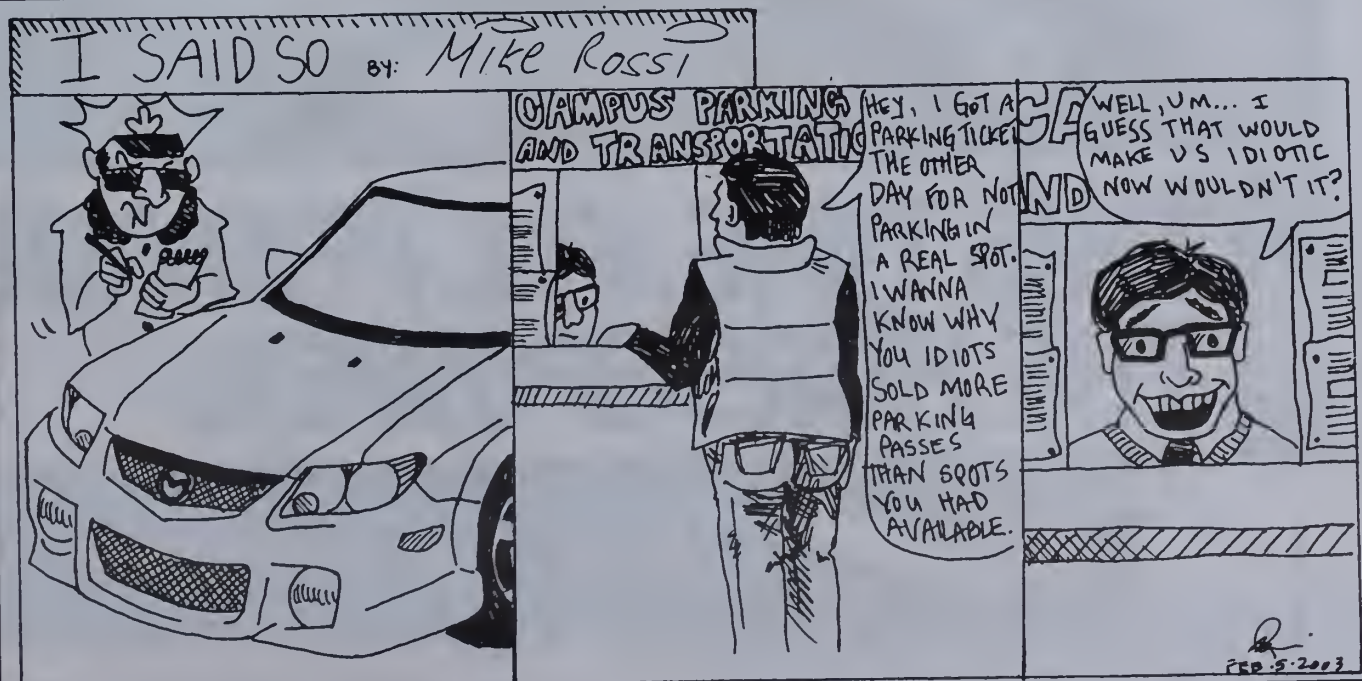 I SAID SO BY: Mike Rossi
CAMPUS PARKING
AND TRANSPORTATIO
HEY, I GOT A
PARKING TICKET
THE OTHER
DAY FOR NOT
PARKING IN
A REAL SPOT.
I WANNA
KNOW WHY
YOU IDIOTS
SOLD MORE
PARKING
PASSES
THAN SPOTS
YOU HAD
AVAILABLE.
CA
ND
WELL, UM... I
GUESS THAT WOULD
MAKE US IDIOTIC
NOW WOULDN'T IT?
FEB.5.2003